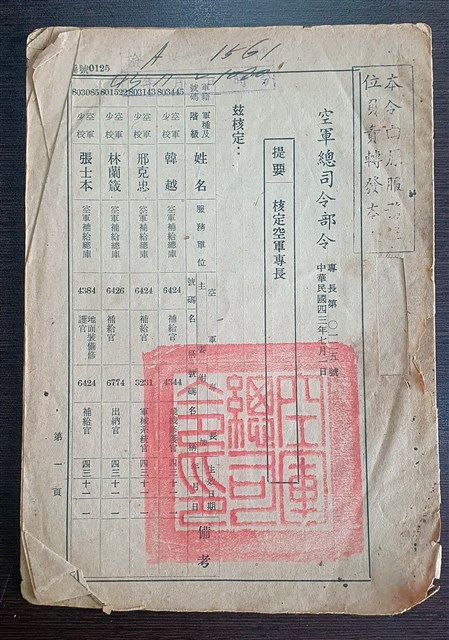 本令由原服務單
位負責轉發本
空軍總司令部令
專長第〇一二五號
中華民國四三年七月 日
提要 核定空軍專長
茲核定：
軍籍號碼 軍種及階級 姓名 服務單位 空軍專長 主 號碼 名稱 附 號碼 名稱 生效日期 年 月 日 備考
803445 空軍少校 韓越 空軍補給總庫 6424 補給官 4344 四三 十一 一
803143 空軍少校 邢克忠 空軍補給總庫 6424 補給官 3231 軍械系統官 四三 十一 一
801522 空軍少校 林蘭箴 空軍補給總庫 6426 補給官 6774 出納官 四三 十一 一
803085 空軍少校 張士本 空軍補給總庫 4384 地面裝備修護官 6424 補給官 四三 十一 一
第一頁
號0125
A 1561
空軍總司令印